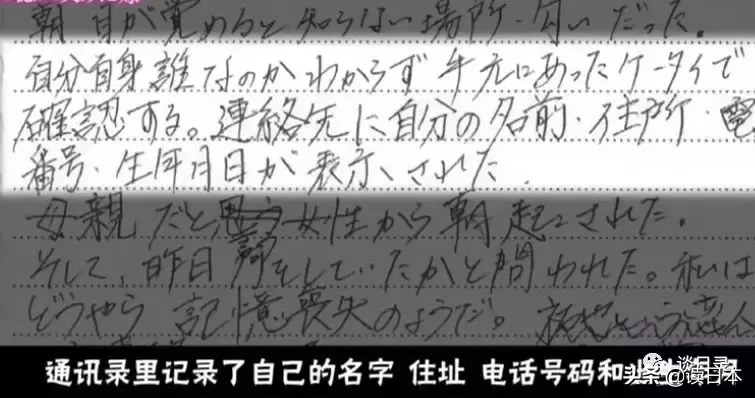 朝 目が覚めると知らない場所・匂いだった。
自分自身誰なのかわからず 手元にあったケータイで
確認する。連絡先に自分の名前・住所・電
番号・生年月日が表示された
母親だと思う女性から朝起こされた。
そして、昨日 をしていたかと問われた。私は
どうやら記憶喪失のようだ。
通讯录里记录了自己的名字 住址 电话号码和
谈日录
头条 @读日本